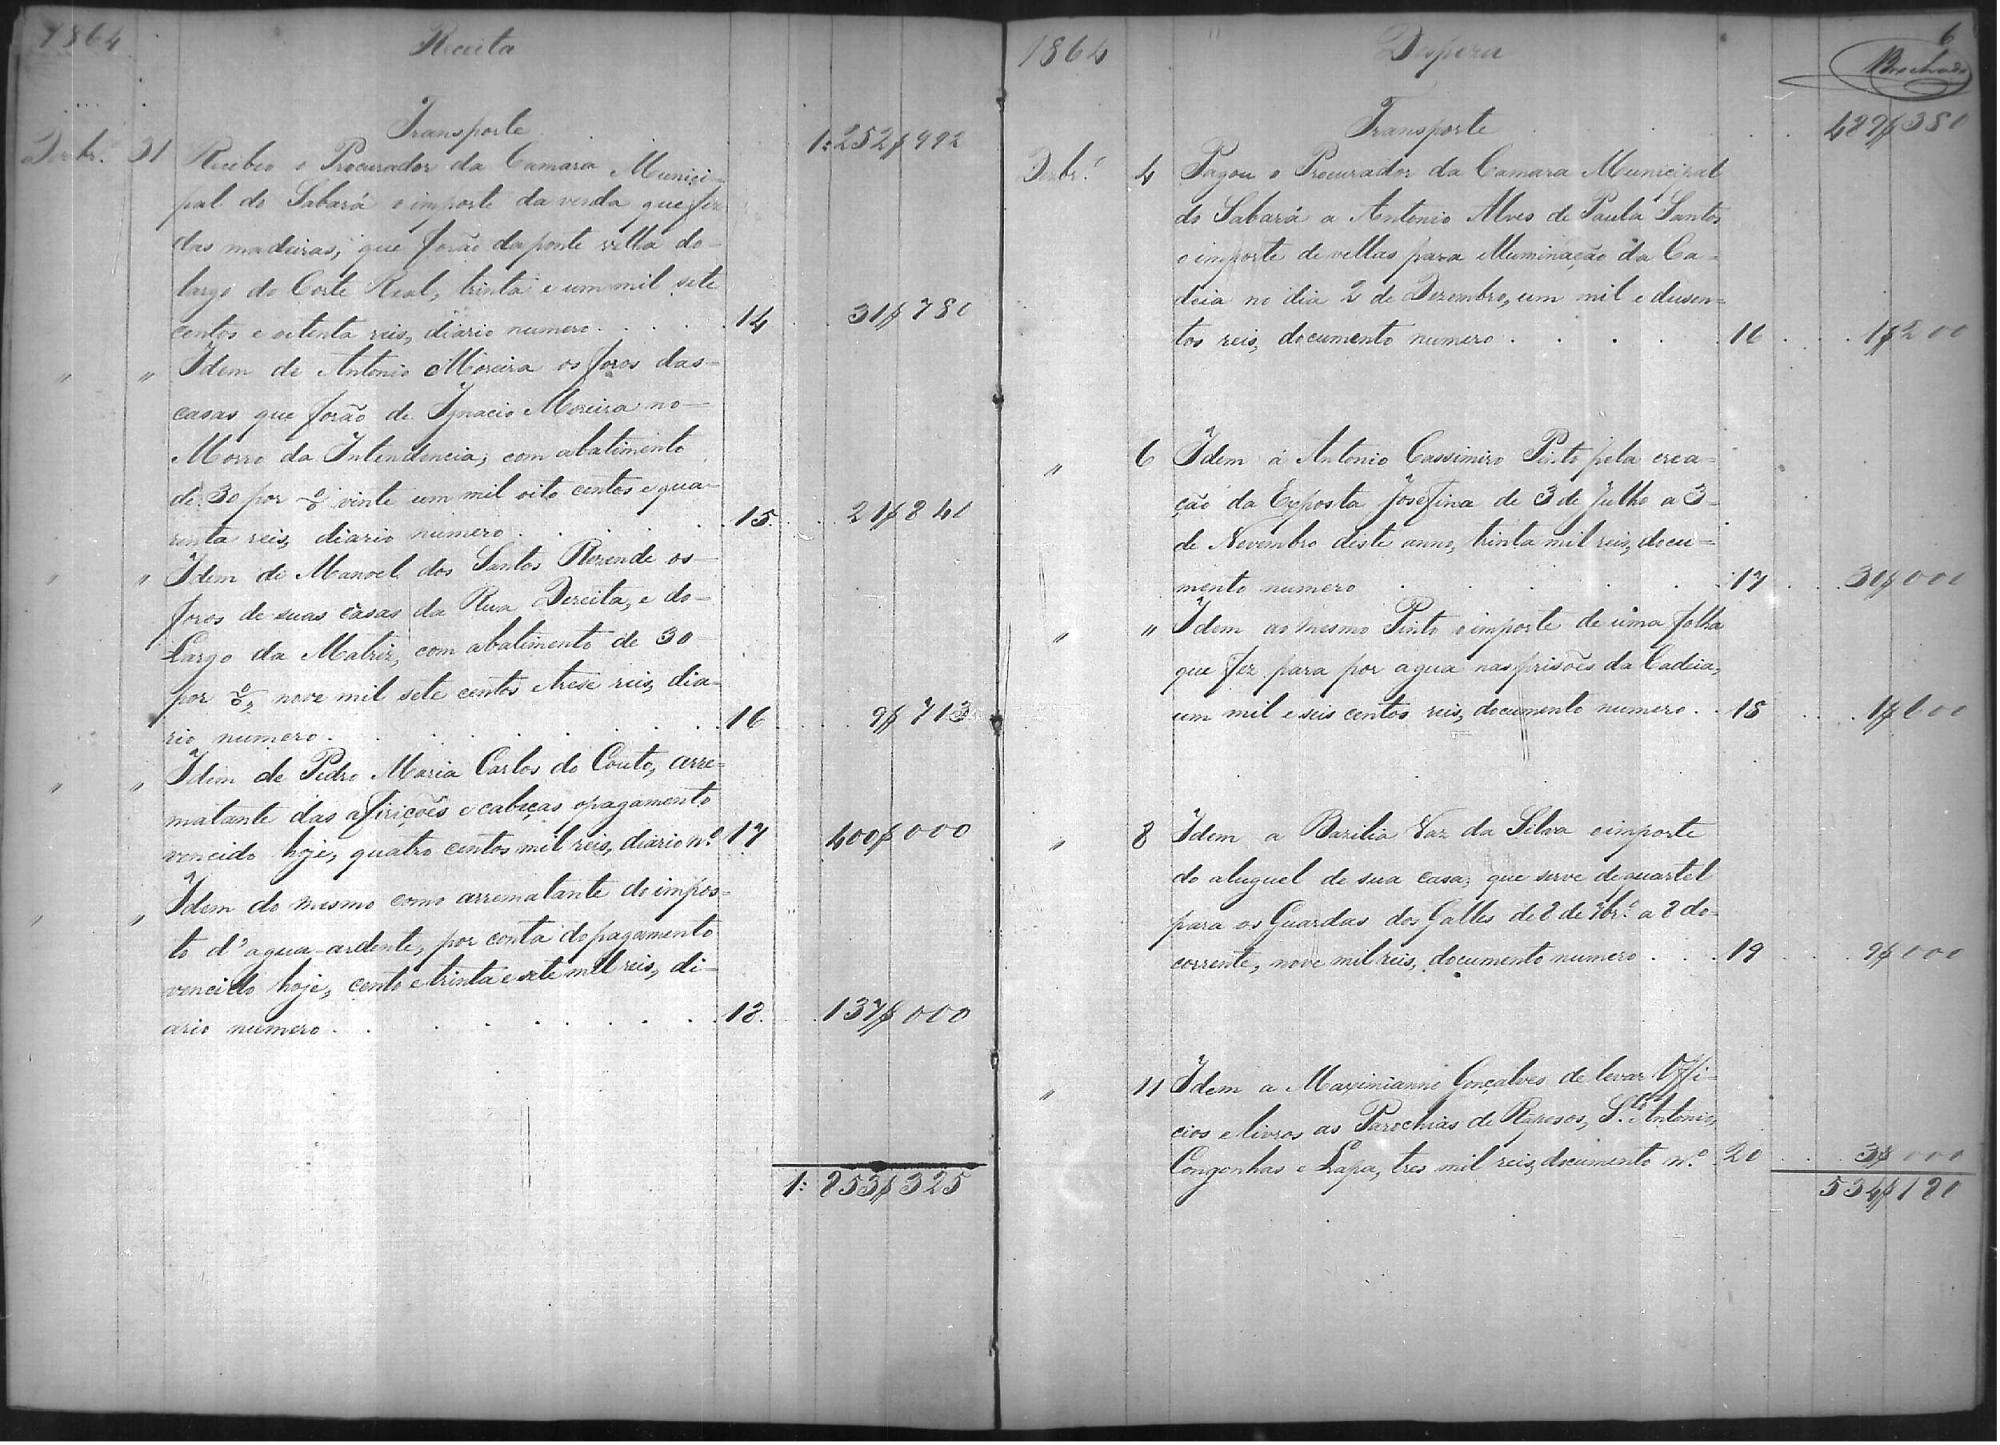 1864
Receita
Transporte
1:252$992
Dezbrº 31 Recebeo o Procurador da Camara Munici-
pal do Sabará o importe da venda que fez
das madeiras, que forão da ponte velha do-
largo do Corte Real, trinta e um mil sete
centos e oitenta reis, diario numero . . . . 14 . . 31$780
" " Idem de Antonio Moreira os foros das-
casas que forão de Ignacio Moreira no-
Morro da Intendencia, com abatimento
de 30 por % vinte um mil oito centos e qua-
renta reis, diario numero . . . . 15 . . 21$840
" " Idem de Manoel dos Santos Rezende os-
foros de suas casas da Rua Dereita, e do-
Largo da Matriz, com abatimento de 30
por %, nove mil sete centos e trese reis, dia-
rio numero . . . . . . . . 16 . . . 9$713
" " Idem de Pedro Maria Carlos do Couto, arre-
matante das afirições e cabeças o pagamento
vencido hoje, quatro centos mil reis, diario nº 17 400$000
" " Idem do mesmo como arrematante do impos-
to d'agua-ardente, por conta do pagamento
vencido hoje, cento e trinta e sete mil reis, di-
ario numero . . . . . . . . 18 . . 137$000
1:853$325
1864
Despeza
6
Brochado
Transporte . . . . . 489$380
Dezbrº 4 Pagou o Procurador da Camara Municipal
do Sabará a Antonio Alves de Paula Santos
o importe de vellas para illuminação da Ca-
deia no dia 2 de Dezembro, um mil e dusen-
tos reis, documento numero . . . . . 16 . . . 1$200
" 6 Idem á Antonio Cassimiro Pinto pela crea-
ção da Exposta Josefina de 3 de Julho a 3-
de Novembro deste anno, trinta mil reis, docu-
mento numero . . . . . . 17 . . . 30$000
" " Idem ao mesmo Pinto o importe de uma folha
que fez para por agua nas prisões da Cadeia,
um mil e seis centos reis, documento numero . . 18 . . . 1$600
" 8 Idem a Bazilia Vaz da Silva o importe
do aluguel de sua casa, que serve de quartel
para os Guardas dos Galles de 8 de 9brº a 8 do-
corrente, nove mil reis, documento numero . . . 19 . . . 9$000
" 11 Idem a Maximianno Gonçalves de levar Offi-
cios e livros as Parochias de Raposos, Stº Antonio,
Congonhas e Lapa, tres mil reis, documento nº 20 . . . 3$000
534$180